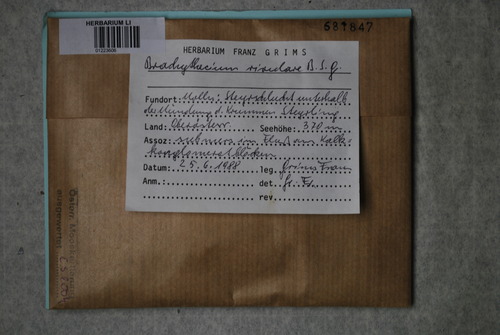 HERBARIUM LI
01223606
681847
HERBARIUM FRANZ GRIMS
Brachythecium rivulare B.S.g.
Fundort: Molln: Steyrschlucht unterhalb
der Mündung d. Krummen Steyrling
Land: Oberösterr. Seehöhe: 370 m
Assoz. submers im Fluß an Kalk-
konglomeratblöcken
Datum: 25.6.1988 leg. Grims Franz
Anm.: det. Gr. Fr.
rev.